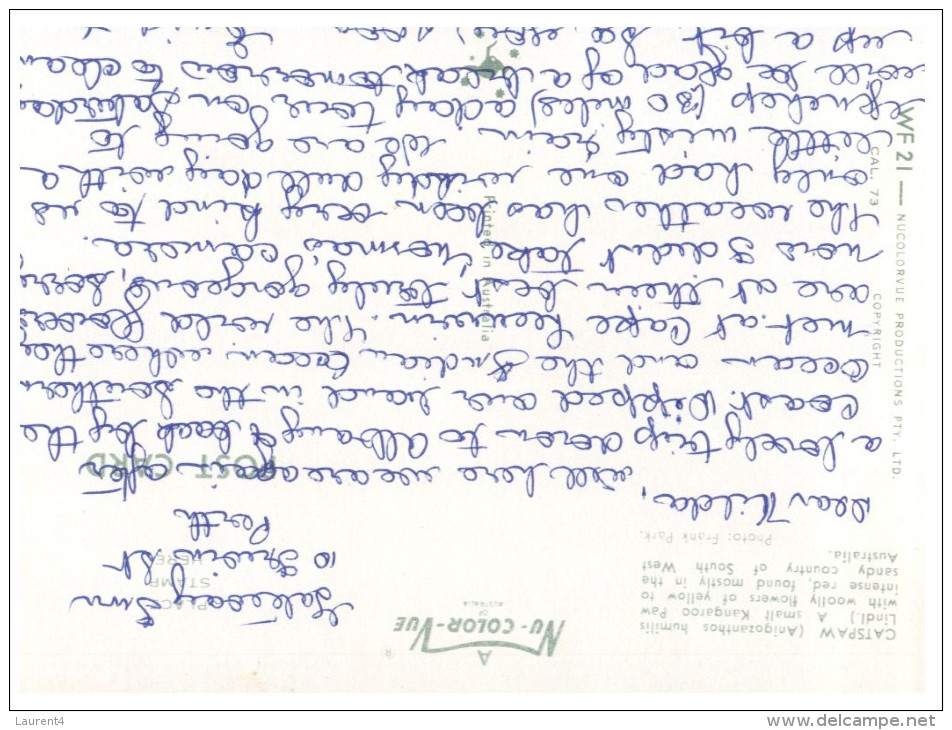 A
NU-COLOR-VUE
OF
AUSTRALIA
®
CATSPAW (Anigozanthos humilis
Lindl.) A small Kangaroo Paw
with woolly flowers of yellow to
intense red, found mostly in the
sandy country of South West
Australia.
Photo: Frank Park.
PLACE
STAMP
HERE
POST CARD
Inn
10 Irwin St
Perth
Dear Hilda,
Well here we are again after
a lovely trip down to Albany & back by the
Coast. Dipped our hand in the Southern
Ocean and the Indian Ocean where they
met at Cape Leeuwin. The wild flowers
are at their best truly gorgeous, sorry
now I didnt take Norma's camera.
The weather has been very kind to us
only had one windy dull day with a
little misty rain. We are going to
(30 miles) a day tour on Saturday
will be glad of a break tomorrow to clean
up a bit
WF 21 — NUCOLORVUE PRODUCTIONS PTY. LTD.
CAL. 73
COPYRIGHT
Printed in Australia
Laurent4
www.delcampe.net